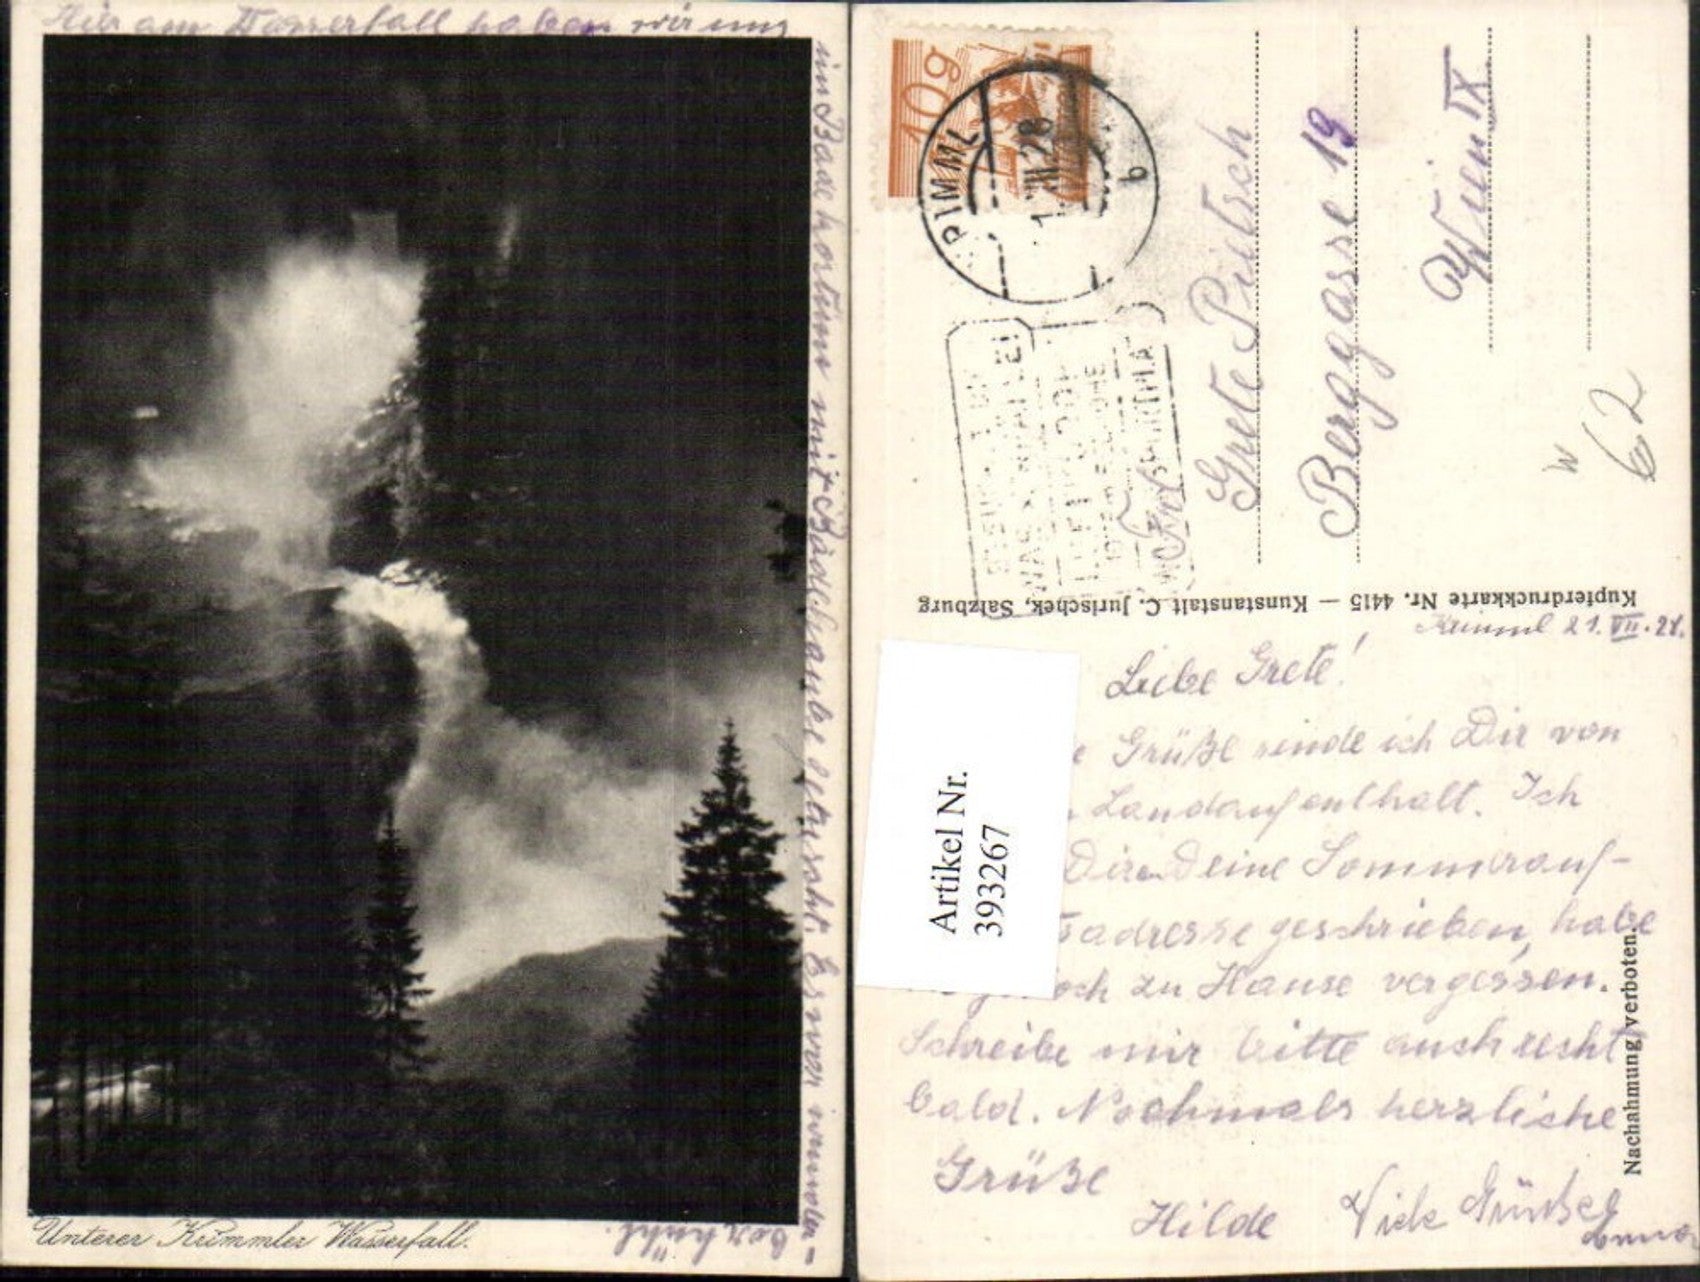 Hier am Wasserfall haben wir uns
im Badekostüm mit Badehaube geduscht. Es war wunder-
bar kühl.
Unterer Krimmler Wasserfall.
10g
KRIMML
1.VIII.28
b
Frl.
Grete Pietsch
Berggasse 19
Wien IX
W
62
Kupferdruckkarte Nr. 4415 — Kunstanstalt C. Jurischek, Salzburg
Nachahmung verboten.
Artikel Nr.
393267
Krimml 21. VII. 28.
Liebe Grete!
Grüße sende ich Dir von
Landaufenthalt. Ich
Dir Deine Sommerauf-
adresse geschrieben, habe
doch zu Hause vergessen.
Schreibe mir bitte auch recht
bald. Nochmals herzliche
Grüße
Hilde
Viele Grüße